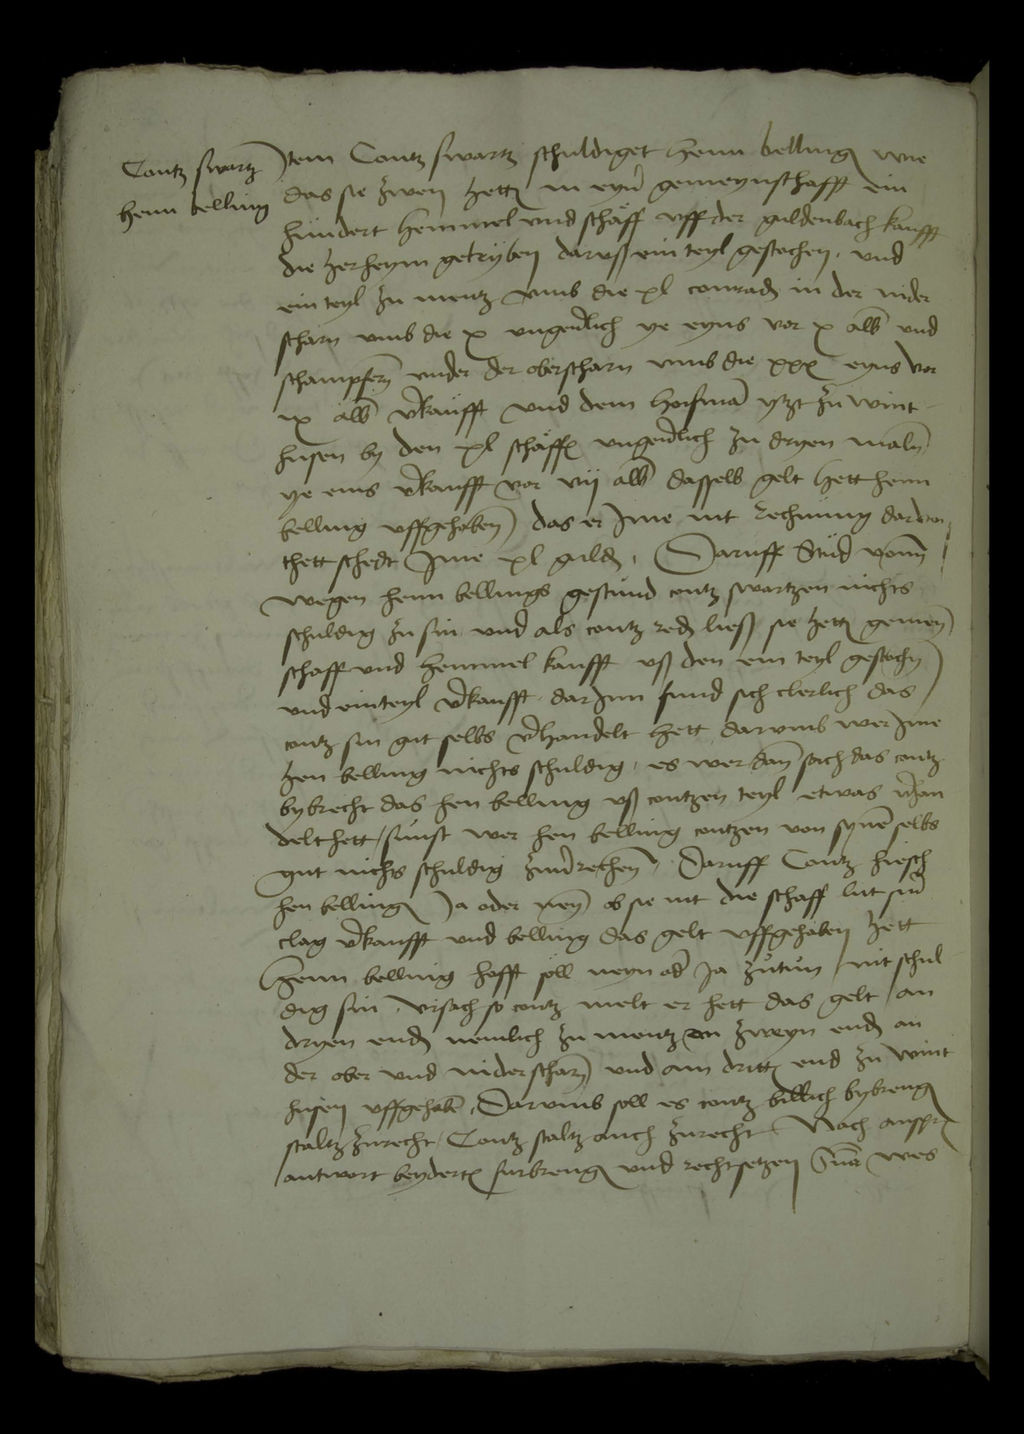 Contz swartz
henn belling
Item Contz swartz schuldiget henn bellingen wie
das sie zwen hetten in eyner gemeynschafft ein
hundert hemmel und schäff uff der guldenbach kaufft
die herheym getryben daruß ein teyl gestochen und
ein teyl zu mentz umb die xl conraden in der nider
scharn umb die x ungeverlich ye eyns vor x alb und
schampferen under der oberscharn umb die xxx eyns vor
ix alb verkaufft und dem hoifman ytzt zu wint
husen by den xl schäffen ungeverlich zu dryen maln
ye eins verkaufft vor vij alb dasselb gelt hett henn
belling uffgehaben das er Ime nit rechnung darvon
thett schedt Ime xl gulden. Daruff Stud vonn
wegen henn bellings gestund contz swartzen nichts
schuldig zu sin und als contz reden ließ sie hetten gemeyn
schaff und hemmel kaufft uß den ein teyl gestochen
und ein teyl verkaufft dar Inn fund sich clerlich das
contz sin gut selbs verhandelt hett dar umb wer Ime
hen belling nichts schuldig, es wer dan sach das contz
bybrecht das hen belling uß contzen teyl etwas verhan
delt hett, sunst wer hen belling contzen von synem selbs
gut nichts schuldig zuverrechen, Daruff Contz hiesch
hen bellingen Ja oder neyn ob sie nit die schaff lut siner
clag verkaufft und belling das gelt uffgehaben hett
Henn belling hofft soll neyn ader Ja zutun nit schul
dig sin, ursach so contz melt er hett das gelt an
dryen enden nemlich zu mentz an zweyn enden an
der ober und niderscharn und am dritten end zu wint
husen uffgehaben, Darumb soll es contz billich bybrengen
stalts zurecht, Contz stalts auch zurecht, Nach anspra
antwort beyderten furbrengen und rechtsetzen Sententia wes